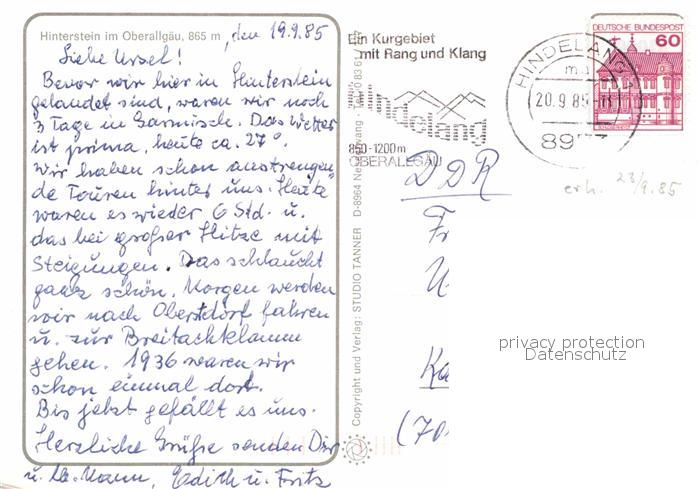 Hinterstein im Oberallgäu, 865 m, den 19.9.85
Liebe Ursel!
Bevor wir hier in Hinterstein
gelandet sind, waren wir noch
3 Tage in Garmisch. Das Wetter
ist prima, heute ca. 27°.
Wir haben schon anstrengen-
de Touren hinter uns. Heute
waren es wieder 6 Std. u.
das bei großer Hitze mit
Steigungen. Das schlaucht
ganz schön. Morgen werden
wir nach Oberstdorf fahren
u. zur Breitachklamm
gehen. 1936 waren wir
schon einmal dort.
Bis jetzt gefällt es uns.
Herzliche Grüße senden Dir
u. Mann, Edith u. Fritz
Copyright und Verlag: STUDIO TANNER D-8964 Nesselwang
Ein Kurgebiet
mit Rang und Klang
Hindelang
850-1200m
OBERALLGÄU
HINDELANG 1
20.9.85
897
DEUTSCHE BUNDESPOST
60
erh. 23/9.85
DDR
Fr
U
Ka
(70
privacy protection
Datenschutz